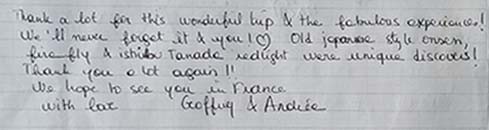 Thank a lot for this wonderful trip & the fabulous experiences!
We'll never forget it & you!♡ Old japanese style onsen,
fire fly & ishibu Tanada redlight were unique discovers!
Thank you a lot again!!
We hope to see you in France
with love Geoffrey & Andrée